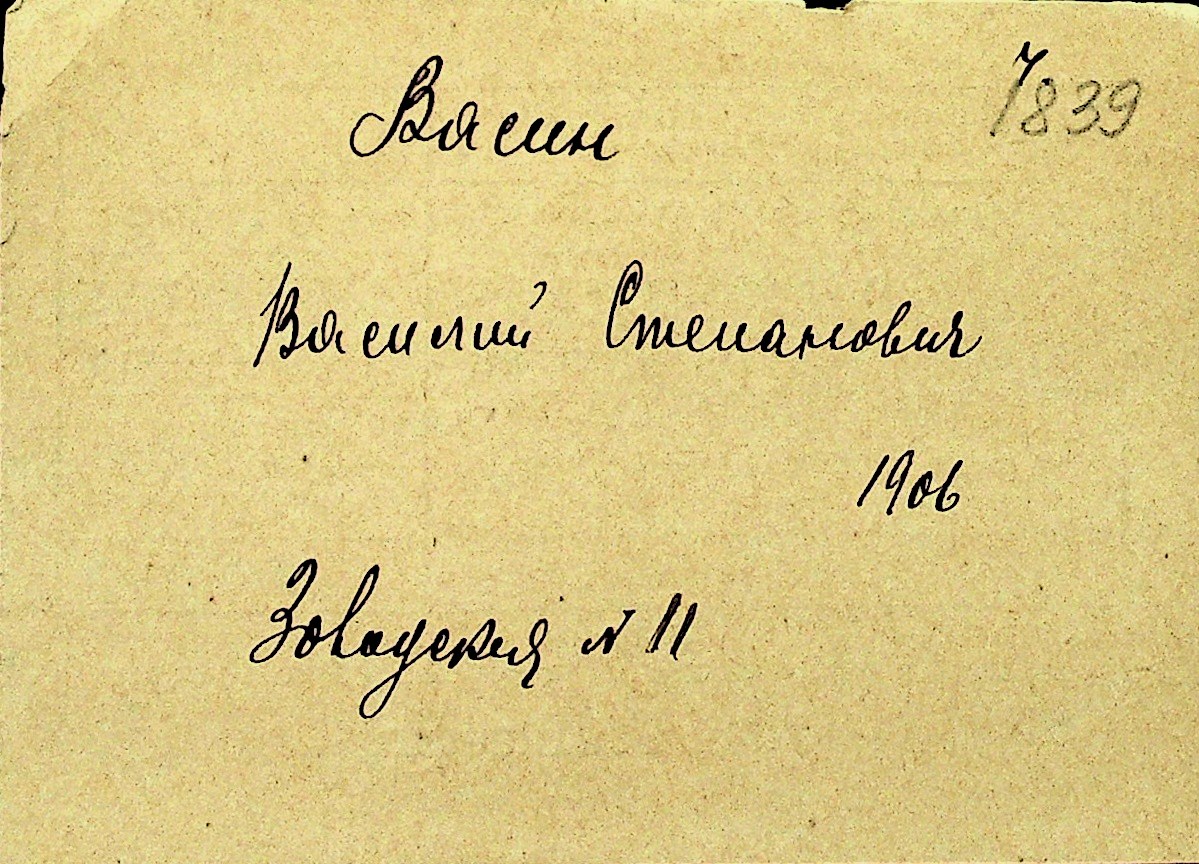 7839
Васин
Василий Степанович
1906
Заводская № 11